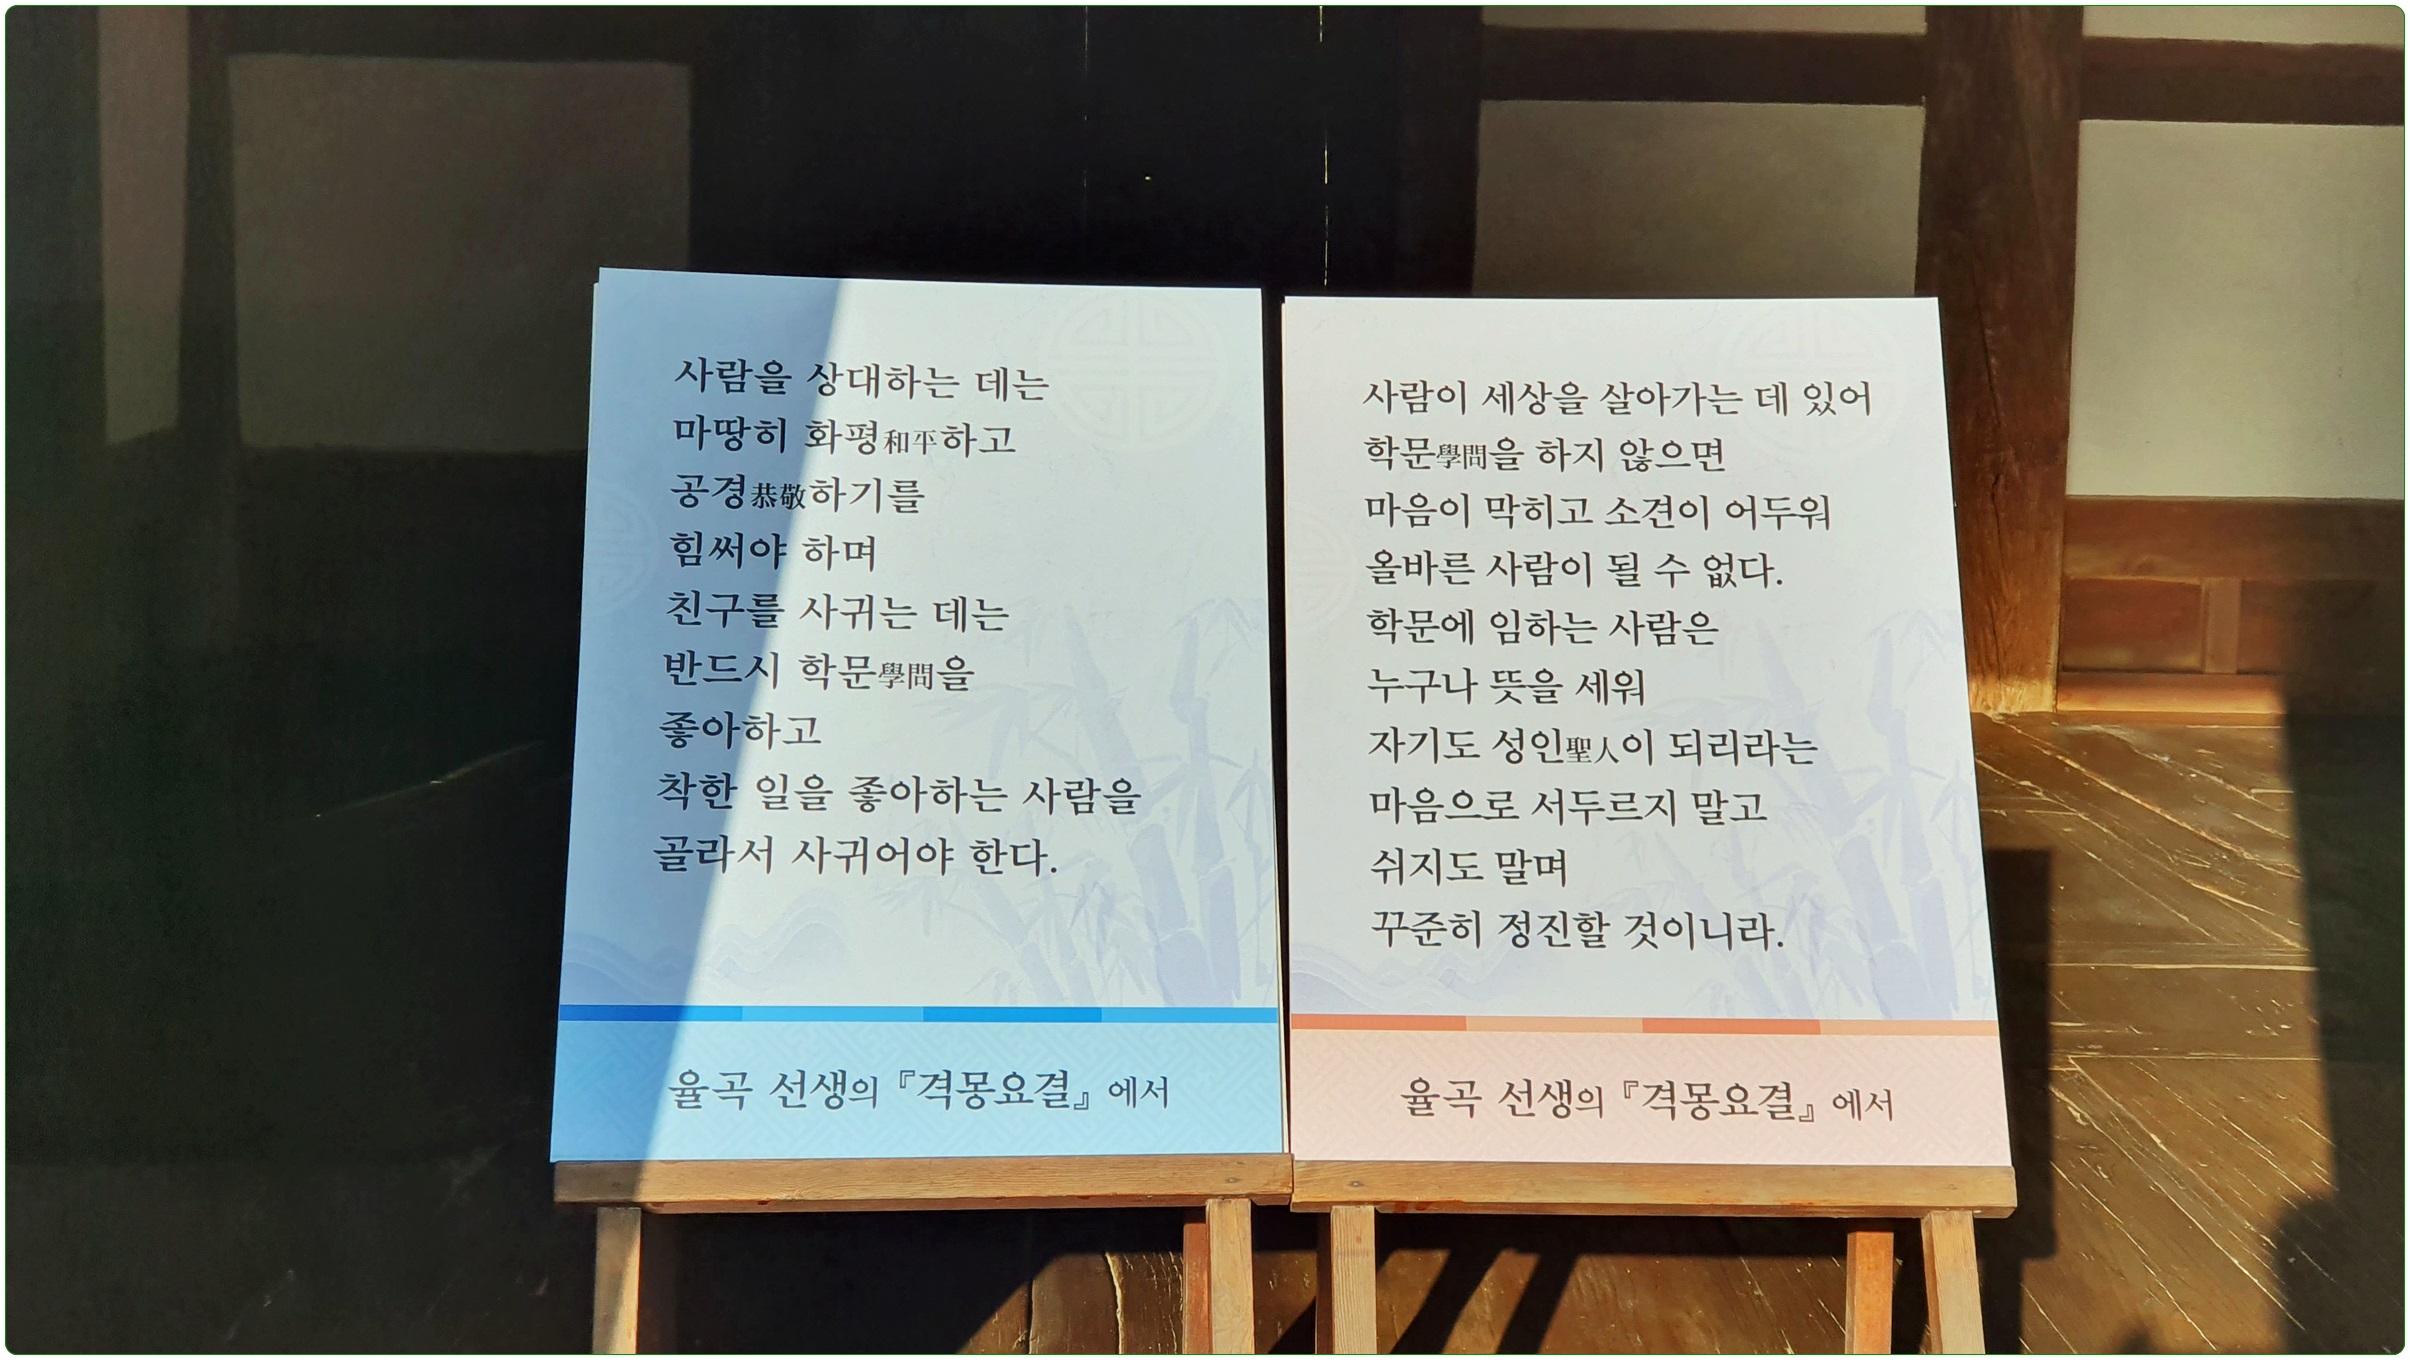 사람을 상대하는 데는
마땅히 화평和平하고
공경恭敬하기를
힘써야 하며
친구를 사귀는 데는
반드시 학문學問을
좋아하고
착한 일을 좋아하는 사람을
골라서 사귀어야 한다.
율곡 선생의 『격몽요결』에서
사람이 세상을 살아가는 데 있어
학문學問을 하지 않으면
마음이 막히고 소견이 어두워
올바른 사람이 될 수 없다.
학문에 임하는 사람은
누구나 뜻을 세워
자기도 성인聖人이 되리라는
마음으로 서두르지 말고
쉬지도 말며
꾸준히 정진할 것이니라.
율곡 선생의 『격몽요결』에서